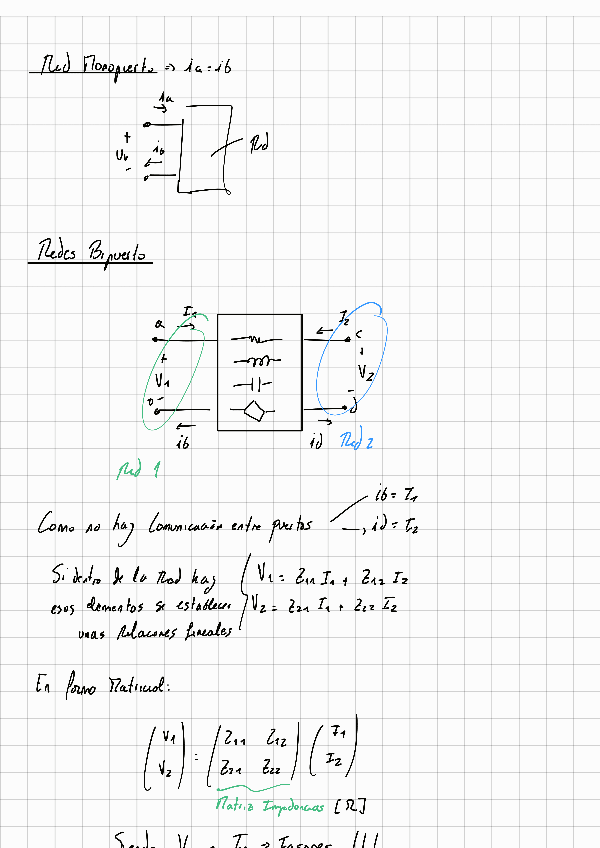 Red Monopuerto ⇒ ia = ib
ia
+
V1
-
ib
Red
Redes Bipuerto
a
I1
I2
c
+
V1
-
+
V2
-
d
ib
id
Red 1
Red 2
Como no hay Comunicación entre puertos
ib = I1
id = I2
Si dentro de la Red hay
esos elementos se establecen
unas Relaciones lineales
V1 = Z11 I1 + Z12 I2
V2 = Z21 I1 + Z22 I2
En forma Matricial:
(V1 V2) = (Z11 Z12 Z21 Z22) (I1 I2)
Matriz Impedancias [Ω]